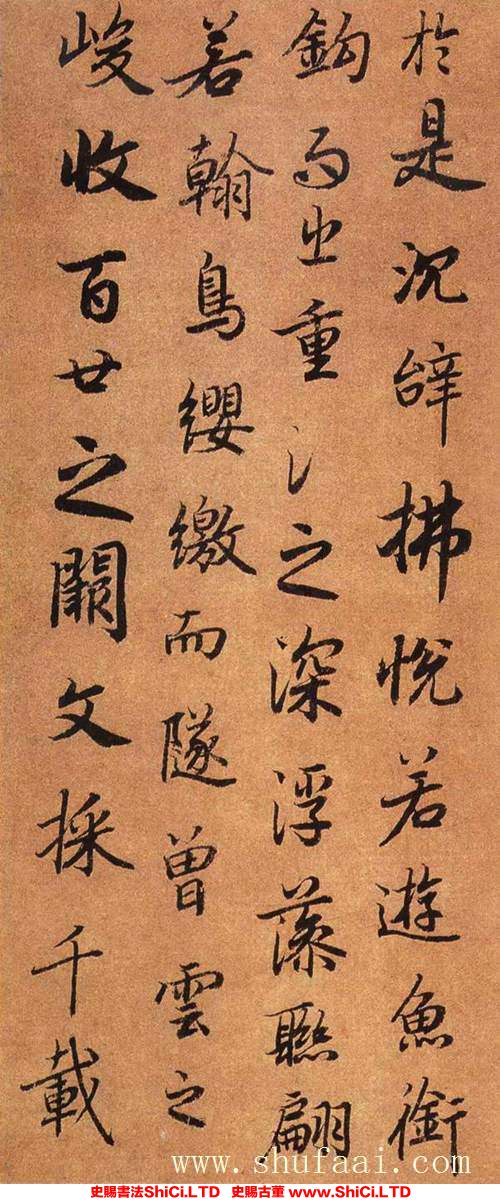 於是沉辭拂悅若遊魚銜
鈎而出重淵之深浮藻聯翩
若翰鳥纓繳而隧曾雲之
峻收百世之闕文採千載
www.shufaai.com
史賜書法ShiCi.LTD 史賜古董 www.ShiCi.LTD